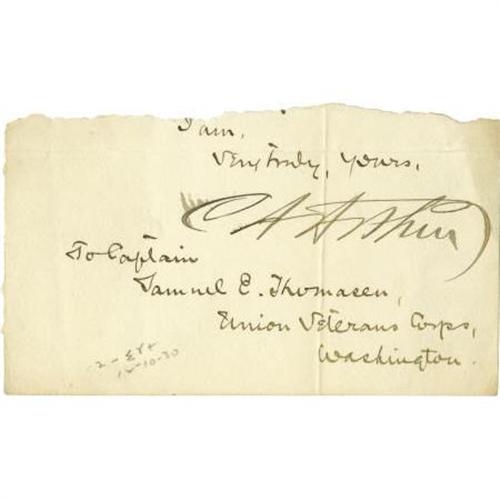 I am,
Very truly, yours,
C A Arthur
To Captain
Samuel E. Thomasen,
Union Veterans Corps,
Washington.
10-30